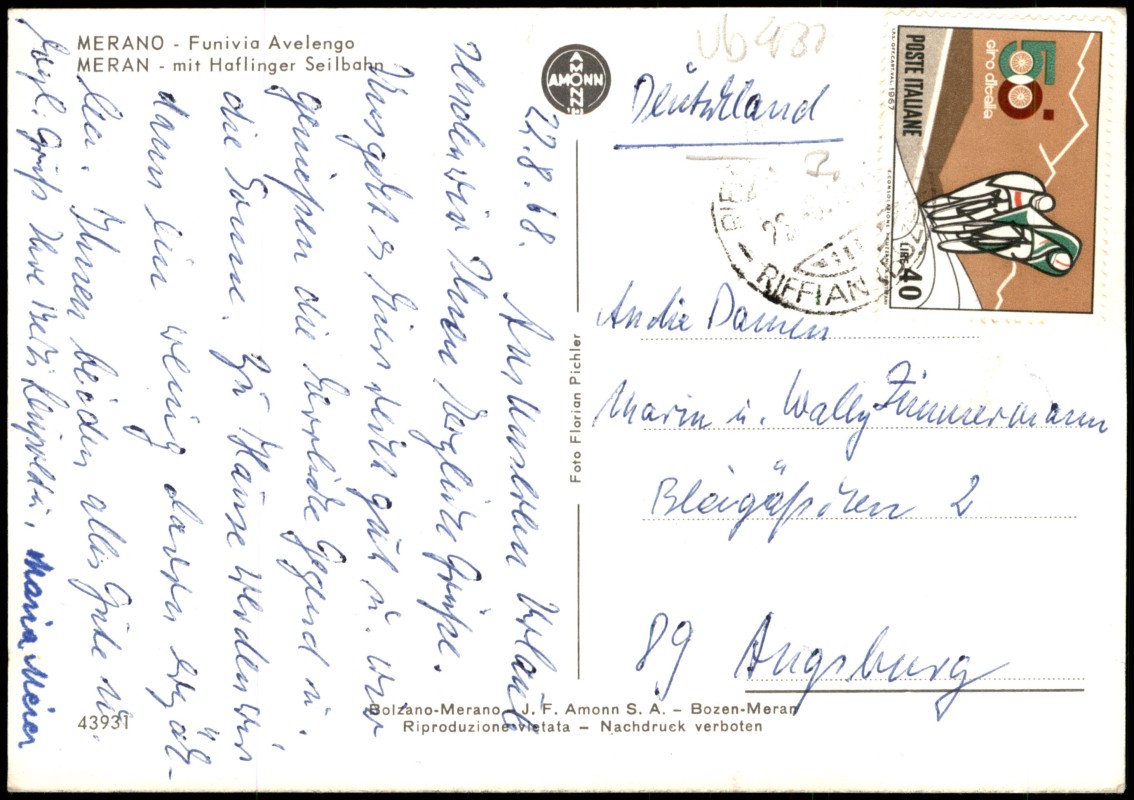 MERANO - Funivia Avelengo
MERAN - mit Haflinger Seilbahn
22.8.68.
Aus unserem Urlaub
senden wir Ihnen herzliche Grüße.
Uns geht es hier sehr gut u. wir
genießen die herrliche Gegend u.
die Sonne. Zu Hause werden wir
dann ein wenig davon erzäh-
len. Ihnen beiden alles Gute u.
herzl. Grüße Ihre Betti Leupold u. Maria Meier
43931
AMONN
AMONN
Foto Florian Pichler
Bolzano-Merano - J. F. Amonn S. A. - Bozen-Meran
Riproduzione vietata - Nachdruck verboten
Vb 431
Deutschland
POSTE ITALIANE
50°
Giro d'Italia
LIRE 40
I.P.S.-OFF.CART.VAL.1967
RIFFIAN
An die Damen
Maria u. Wally Zimmermann
Bleigäßchen 2
89 Augsburg